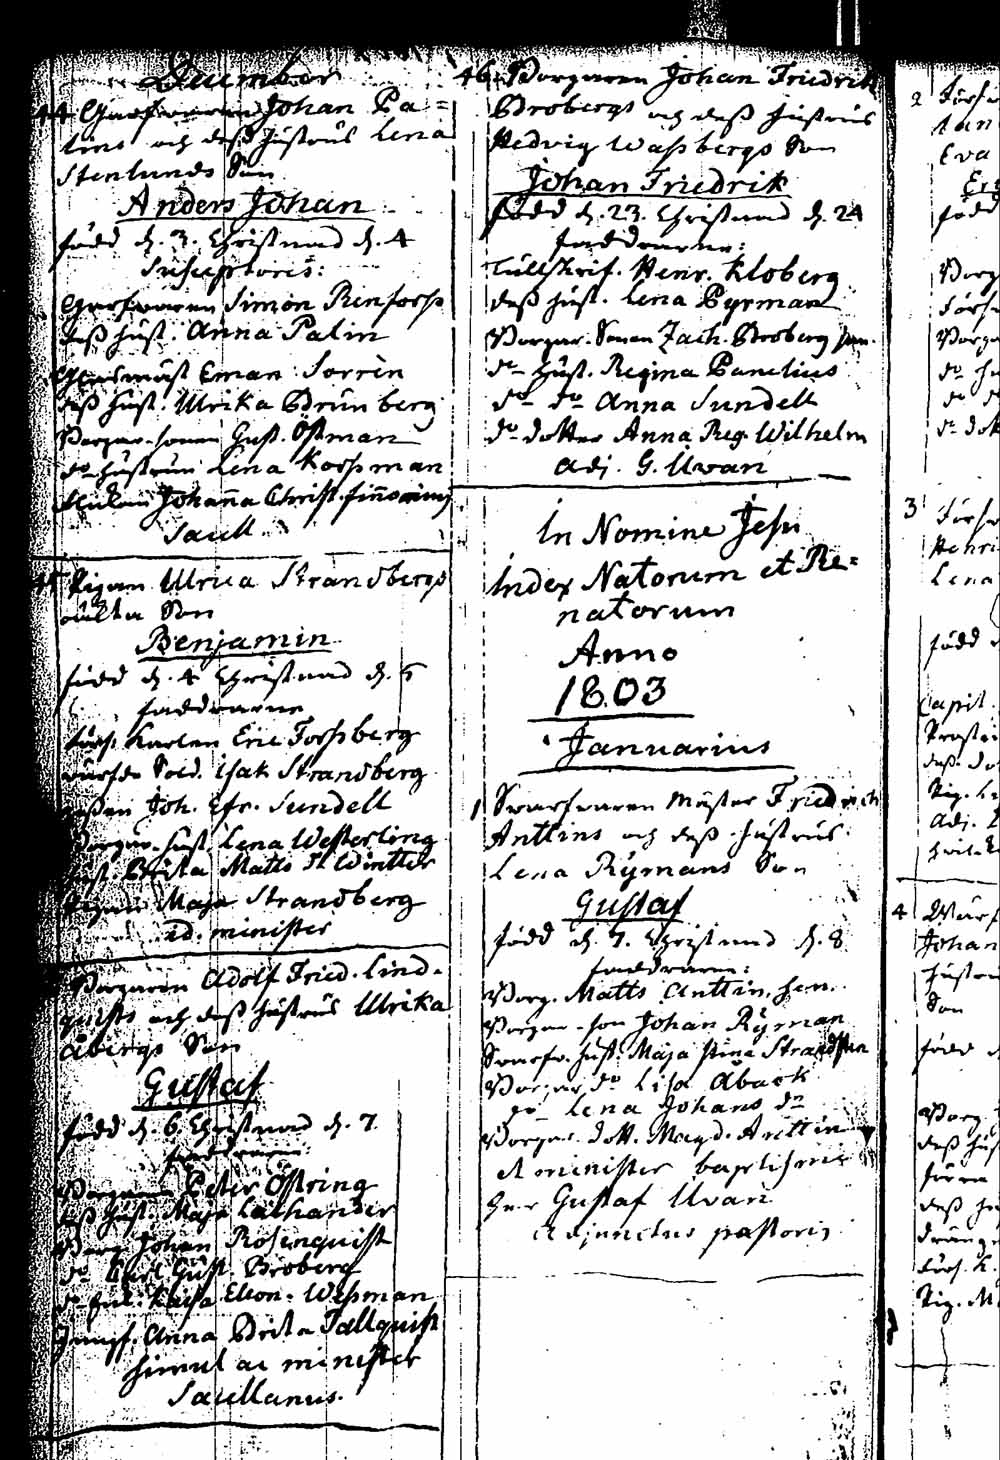 December
44 Garfwaren Johan Pa=
lins och dess hustrus Lena
Stenlunds Son
Anders Johan
född d. 3. Christnad d. 4
Susceptores:
Garfvaren Simon Renforss
dess hust. Anna Palin
Eman. Sorrèn
dess hust. Ulrika Brunberg
Borgar-sonen Gust. Östman
do hustrun Lena Korssman
Johanna Christ.
Saxell.
45 Pigan Ulrica Strandbergs
oäkta Son
Benjamin
född d. 4 Christnad d. 5
faddrarne
Karlen Eric Forssberg
Sold. Isak Strandberg
Joh. Efr. Sundell
Borgar-hust. Lena Westerling
hust. Brita Matts Winter
Pigan Maja Strandberg
id. minister
Borgaren Adolf Fried. Lind-
quists och dess hustrus Ulrika
Åbergs Son
Gustaf
född d. 6 Christnad d. 7.
faddrarne:
Borgaren Peter Östring
dess hust. Maja Lathander
Borg. Johan Rosenquist
do Carl Gust. Broberg
do Caisa Eleon. Wessman
Jungf. Anna Brita Tallquist
simul ac minister
Saxellanus.
46. Borgaren Johan Friedrik
Brobergs och dess hustrus
Hedvig Wassbergs Son
Johan Friedrik
född d. 23. Christnad d. 24
faddrarne:
Tullskrif. Henr. Kloberg
dess hust. Lena Pyrman
Borgar-Sonen Zach. Broberg jun.
do hust. Regina Panelius
do do Anna Sundell
do dotter Anna Reg. Wilhelm
adj. G. Uvan
In Nomine Jesu
Index Natorum et Re=
natorum
Anno
1803
Januarius
1 Swarfvaren Mäster Friedrich
Anttins och dess hustrus
Lena Rymans Son
Gustaf
född d. 7. Christnad d. 8
faddrarne:
Borg. Matts Anttin, sen.
Borgar-son Johan Ryman
Swarfv. hust. Maja Stina Strandsten
Borgar do Lisa Åback
do Lena Johans do
Borgar dott. Magd. Anttin
et minister baptismi
Herr Gustaf Uvan
Adjunctus pastoris
2
Eva
född
Borg
do
do
3
Henri
Lena
född
Capit.
Adj.
4
Johan
hustru
Son
född
Borg
dess hust
dess
Pig. M